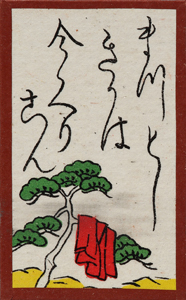 まつとし
きかは
今かへり
こん